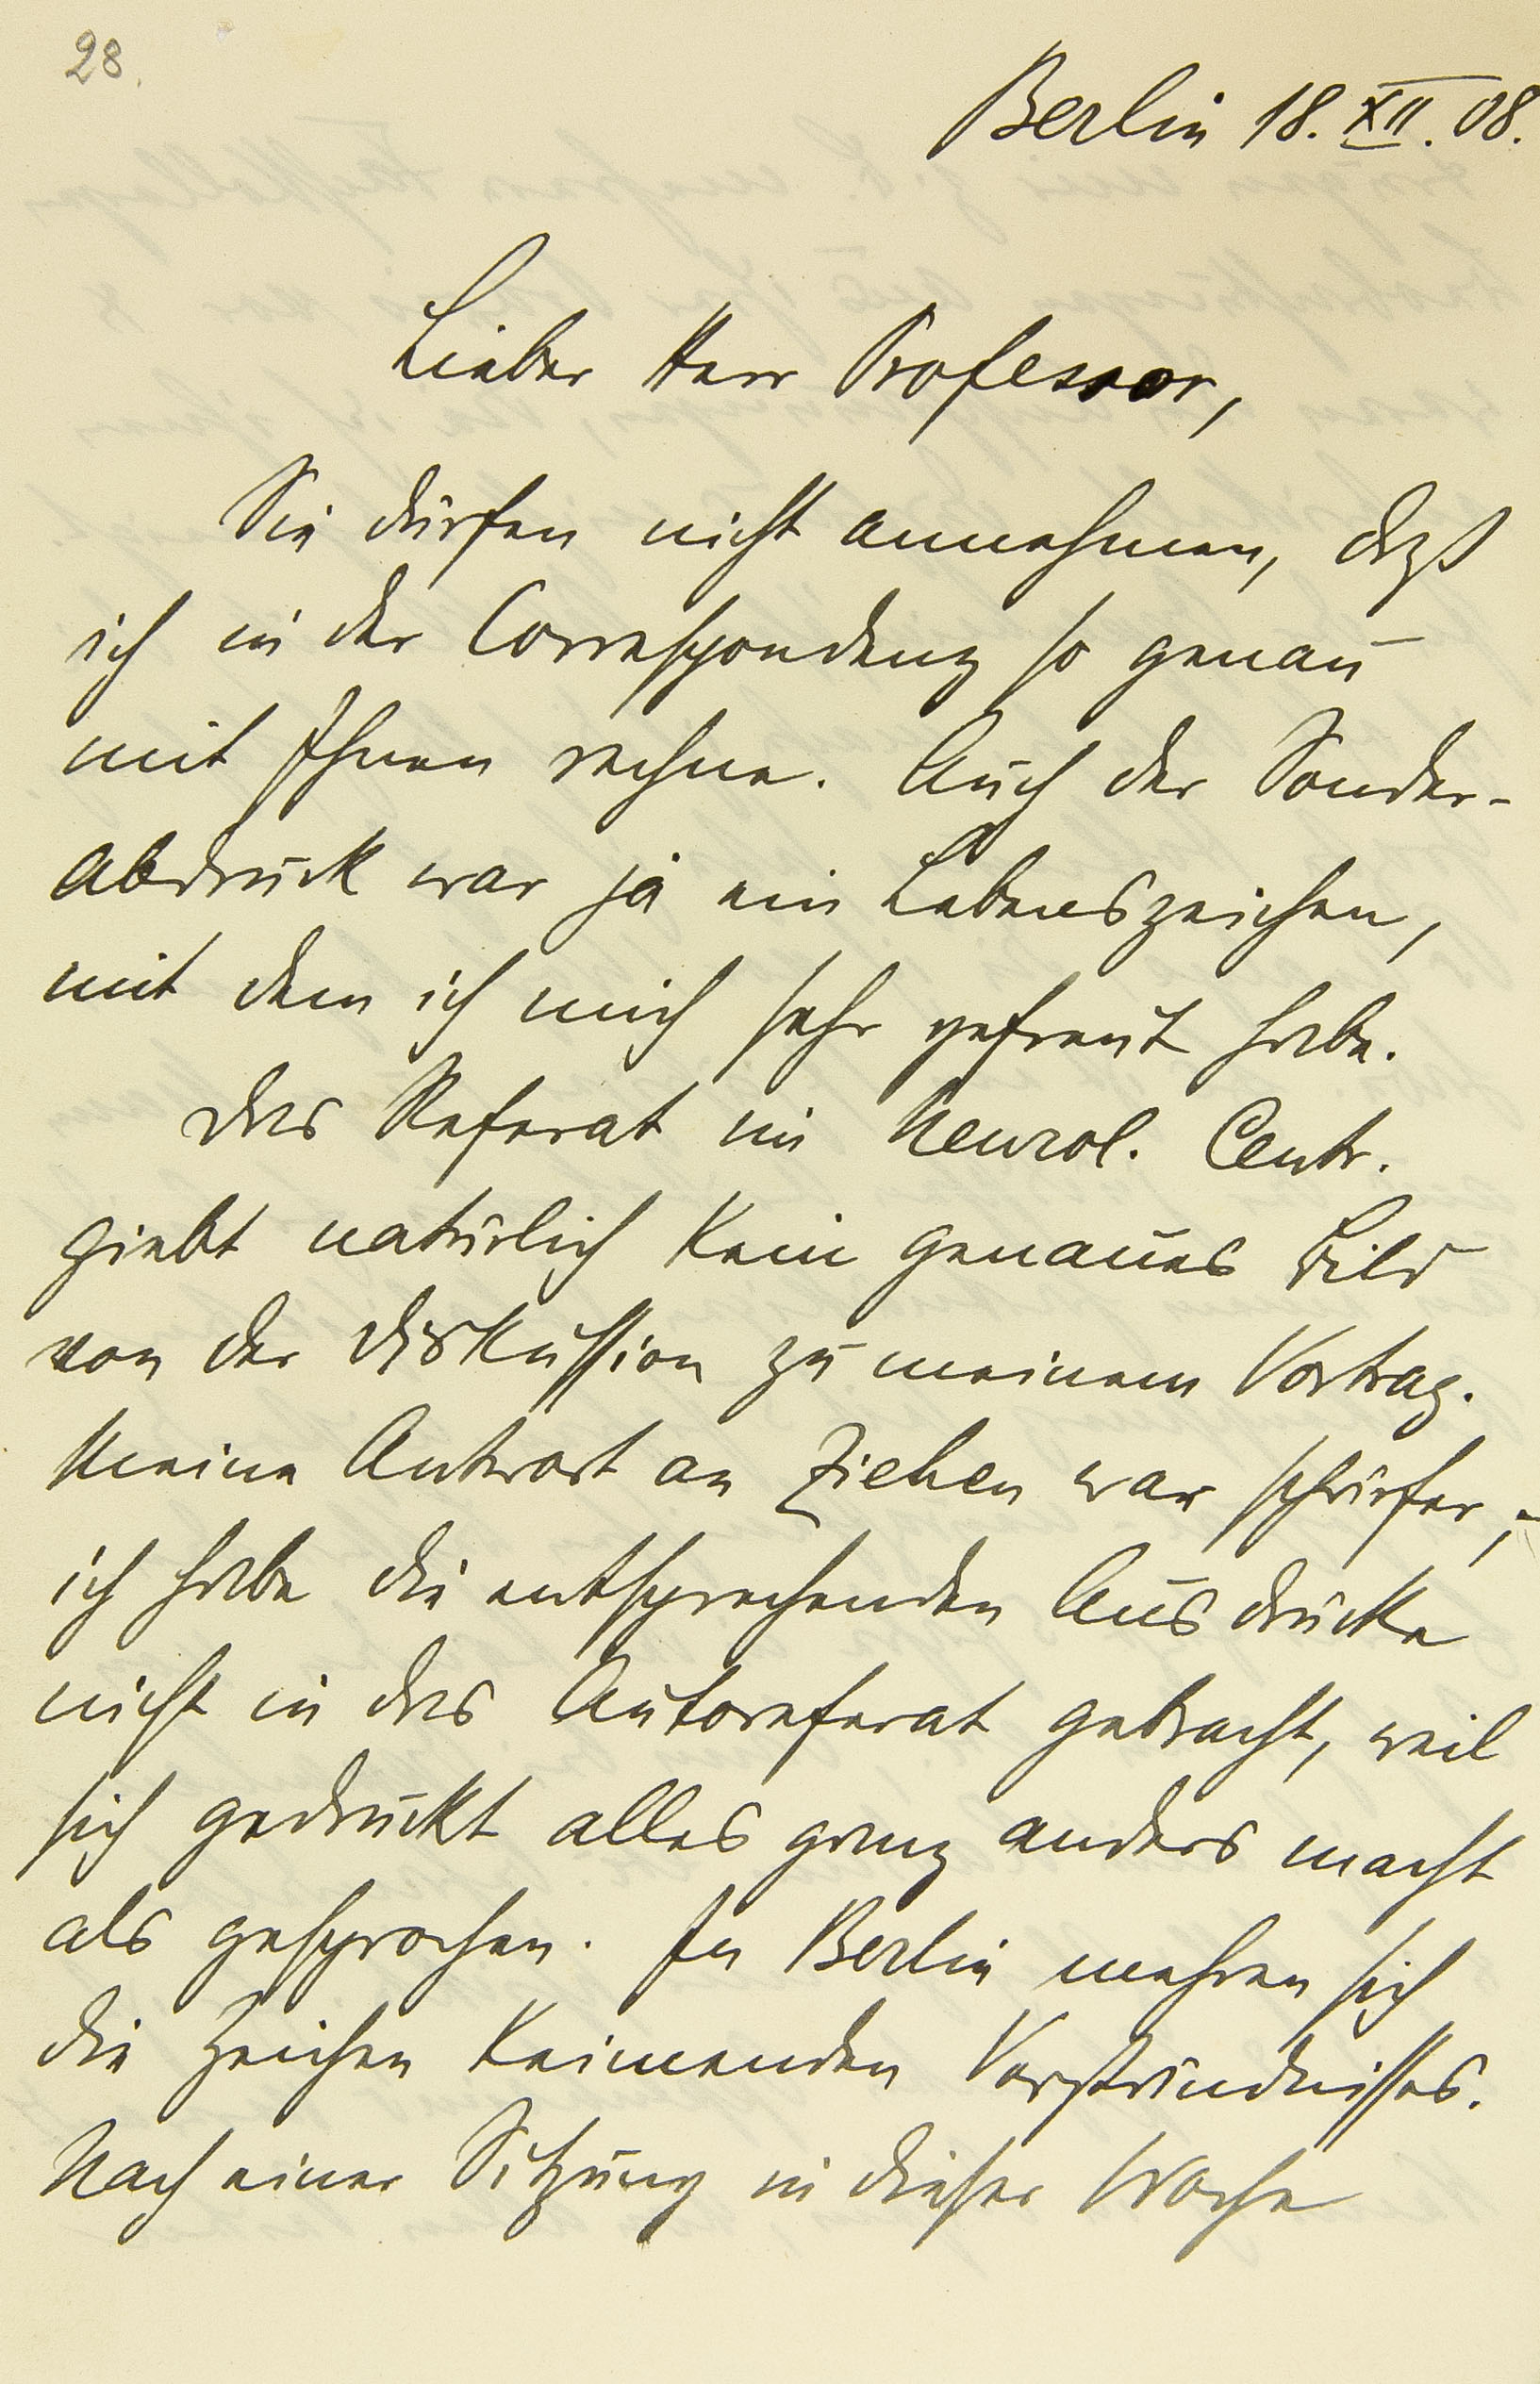 28.
Berlin 18. XII. 08.
Lieber Herr Professor,
Sie dürfen nicht annehmen, daß
ich in der Correspondenz so genau
mit Ihnen rechne. Auch der Sonder-
abdruck war ja ein Lebenszeichen,
mit dem ich mich sehr gefreut habe.
Das Referat im Neurol. Centr.
giebt natürlich kein genaues Bild
von der Diskussion zu meinem Vortrag.
Meine Antwort an Ziehen war schärfer;
ich habe die entsprechenden Ausdrücke
nicht in das Autoreferat gebracht, weil
sich gedruckt alles ganz anders macht
als gesprochen. In Berlin mehren sich
die Zeichen keimenden Verständnisses.
Nach einer Sitzung in dieser Woche